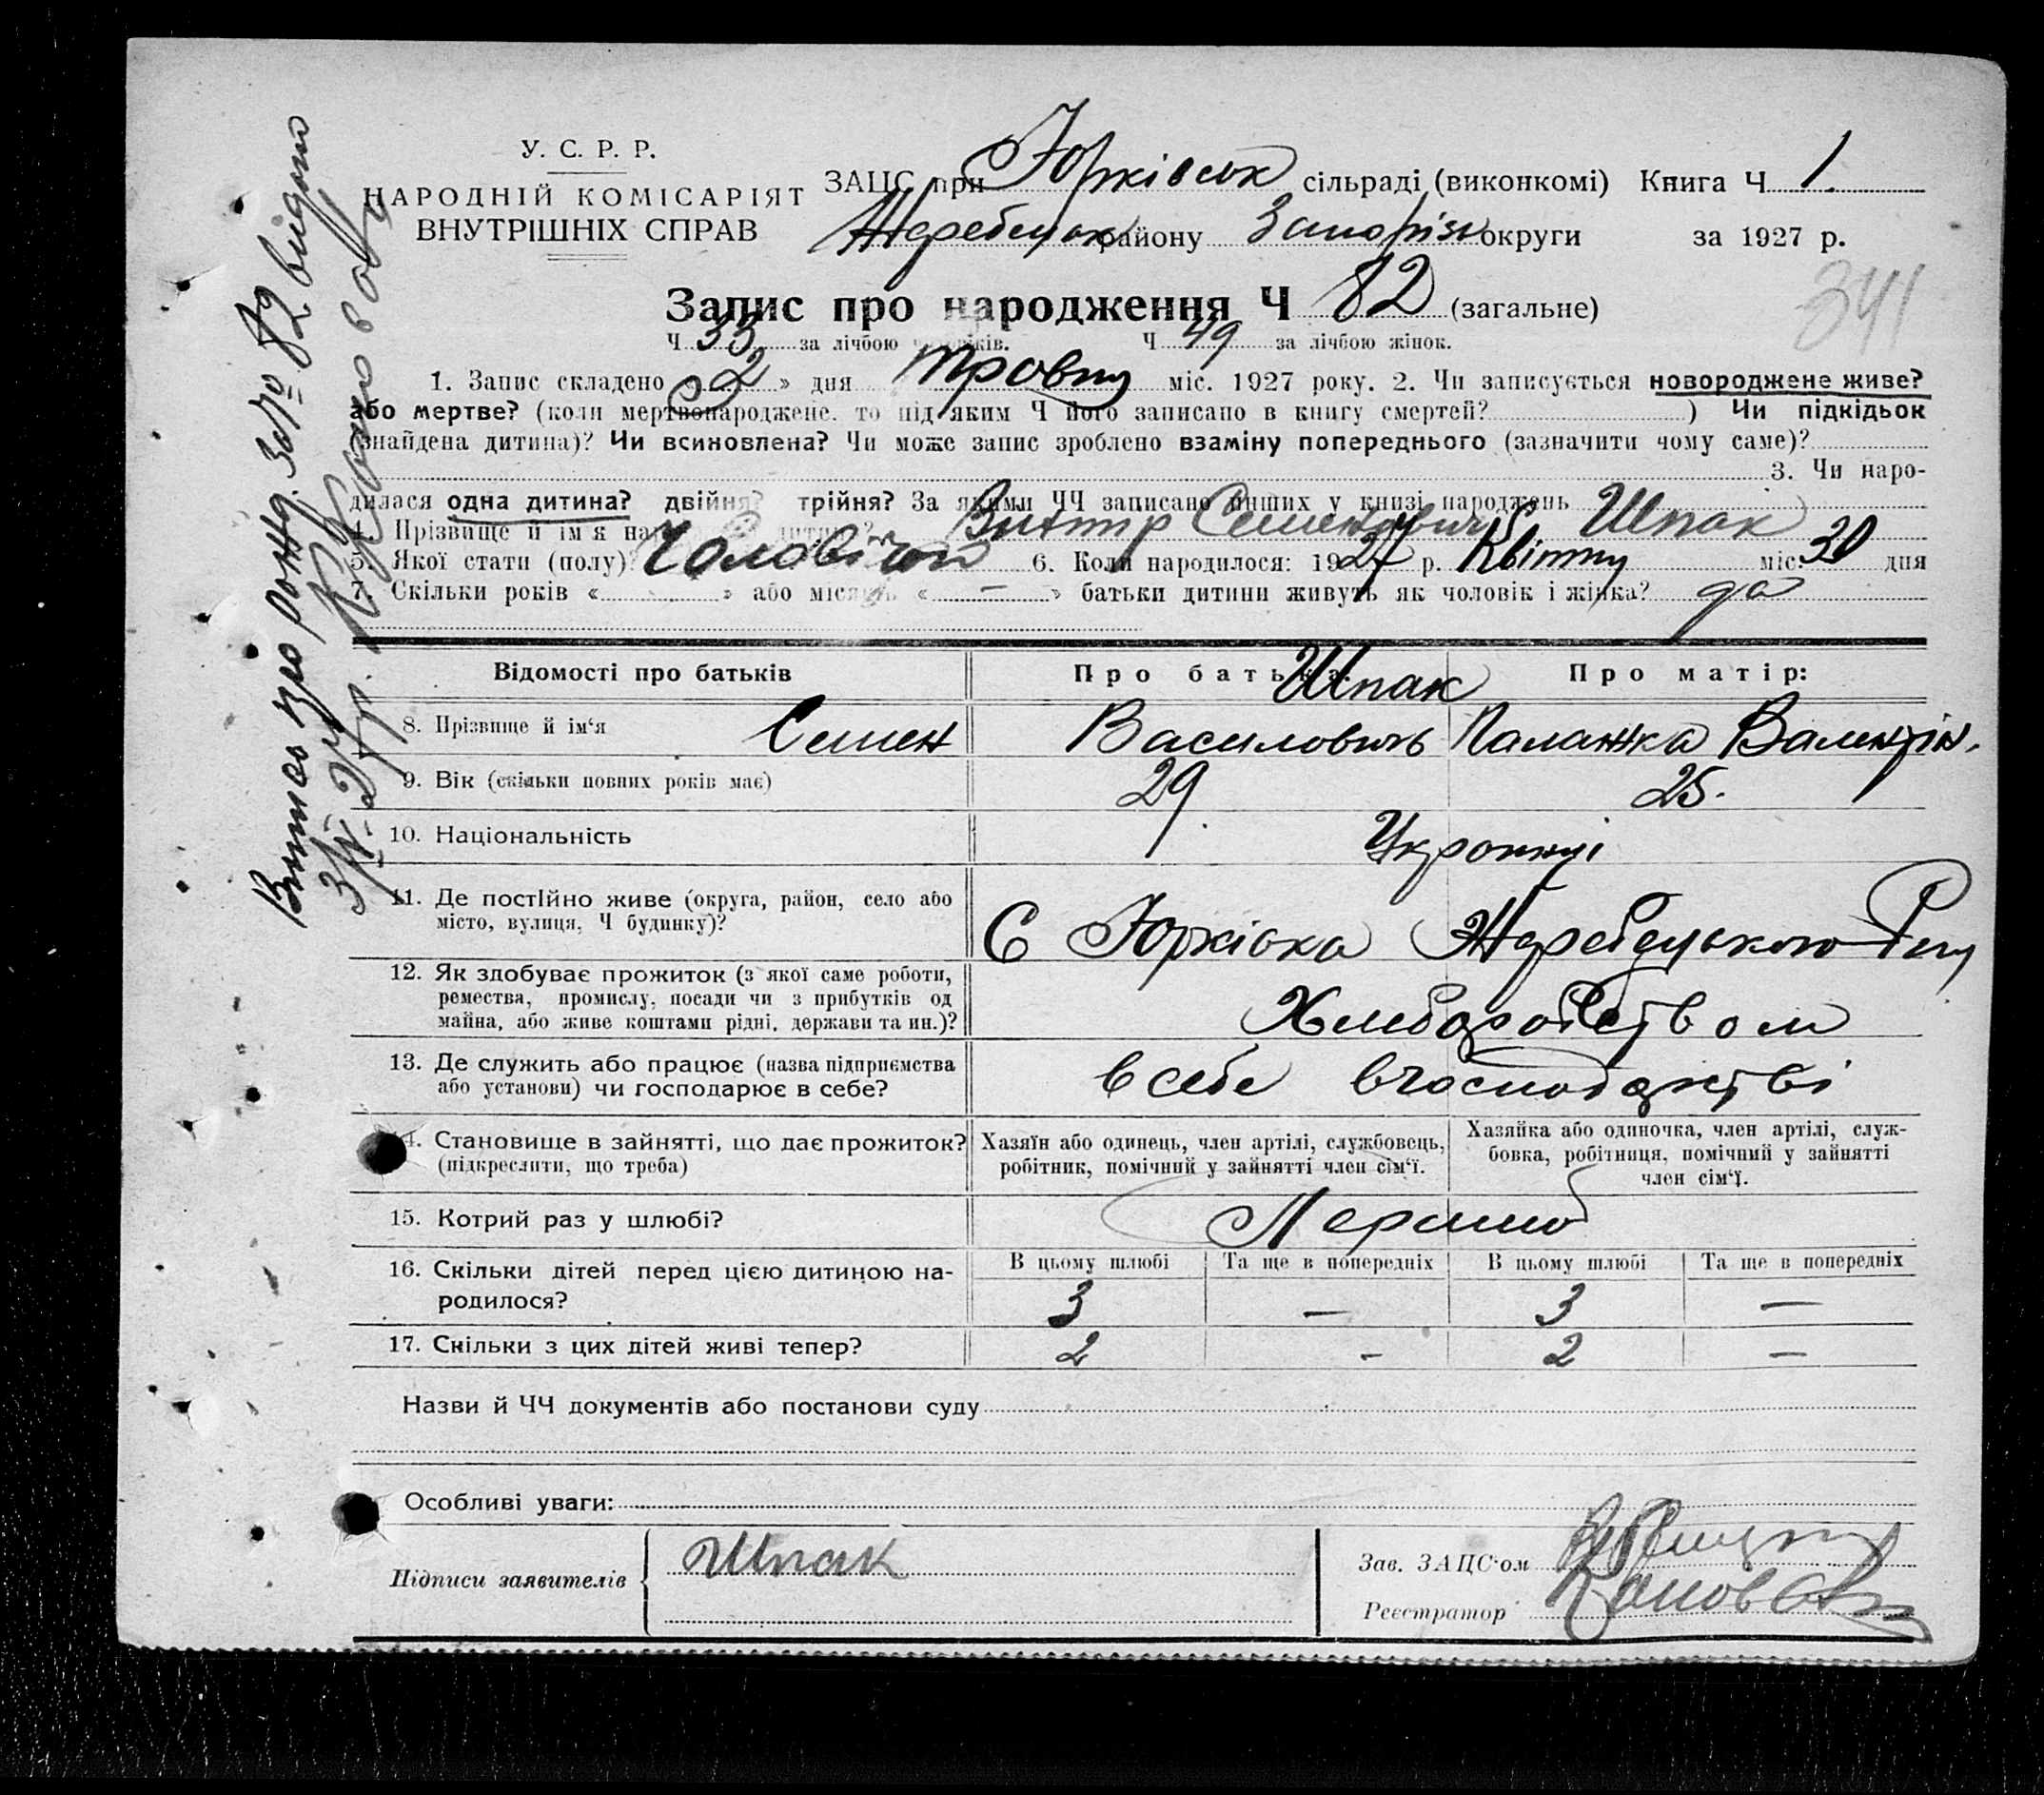 У. С. Р. Р.
НАРОДНІЙ КОМІСАРІЯТ
ВНУТРІШНІХ СПРАВ
ЗАЦС при Юрківськ сільраді (виконкомі) Книга Ч 1.
Жеребецьк району Запоріз округи за 1927 р.
341
Запис про народження Ч 82 (загальне)
Ч 33 за лічбою чоловіків. Ч 49 за лічбою жінок.
1. Запис складено « 2 » дня травня міс. 1927 року. 2. Чи записується новороджене живе?
або мертве? (коли мертвонароджене, то під яким Ч його записано в книгу смертей? ) Чи підкідьок
(знайдена дитина)? Чи всиновлена? Чи може запис зроблено взаміну попереднього (зазначити чому саме)?
3. Чи наро-
дилася одна дитина? двійня? трійня? За якими ЧЧ записано инших у книзі народжень
4. Прізвище й імя Виктір Семенович Шпак
5. Якої стати (полу)? Чоловічой 6. Коли народилося: 1927 р. Квітня міс. 30 дня
7. Скільки років « » або місяців « — » батьки дитини живуть як чоловік і жінка? да
Відомості про батьків Про батька: Про матір:
Шпак
8. Прізвище й ім'я Семен Василовичь Палажка Валентін.
9. Вік (скільки повних років має) 29 25.
10. Національність Украинці
11. Де постійно живе (округа, район, село або
місто, вулиця, Ч будинку)?
С Юрківка Жеребецького Р-ну
12. Як здобуває прожиток (з якої саме роботи,
ремества, промислу, посади чи з прибутків од
майна, або живе коштами рідні, держави та ин.)?
Хлеборобством
13. Де служить або працює (назва підприємства
або установи) чи господарює в себе?
в себе в господарстві
14. Становище в зайнятті, що дає прожиток?
(підкреслити, що треба)
Хазяїн або одинець, член артілі, службовець,
робітник, помічний у зайнятті член сім'ї.
Хазяйка або одиночка, член артілі, служ-
бовка, робітниця, помічний у зайнятті
член сім'ї.
15. Котрий раз у шлюбі?
16. Скільки дітей перед цією дитиною на-
родилося?
В цьому шлюбі Та ще в попередніх В цьому шлюбі Та ще в попередніх
3 — 3 —
17. Скільки з цих дітей живі тепер? 2 - 2 —
Назви й ЧЧ документів або постанови суду
Особливі уваги:
Підписи заявителів Шпак
Зав. ЗАЦС'ом
Реєстратор
Витяг про рожд. за № 82 видано